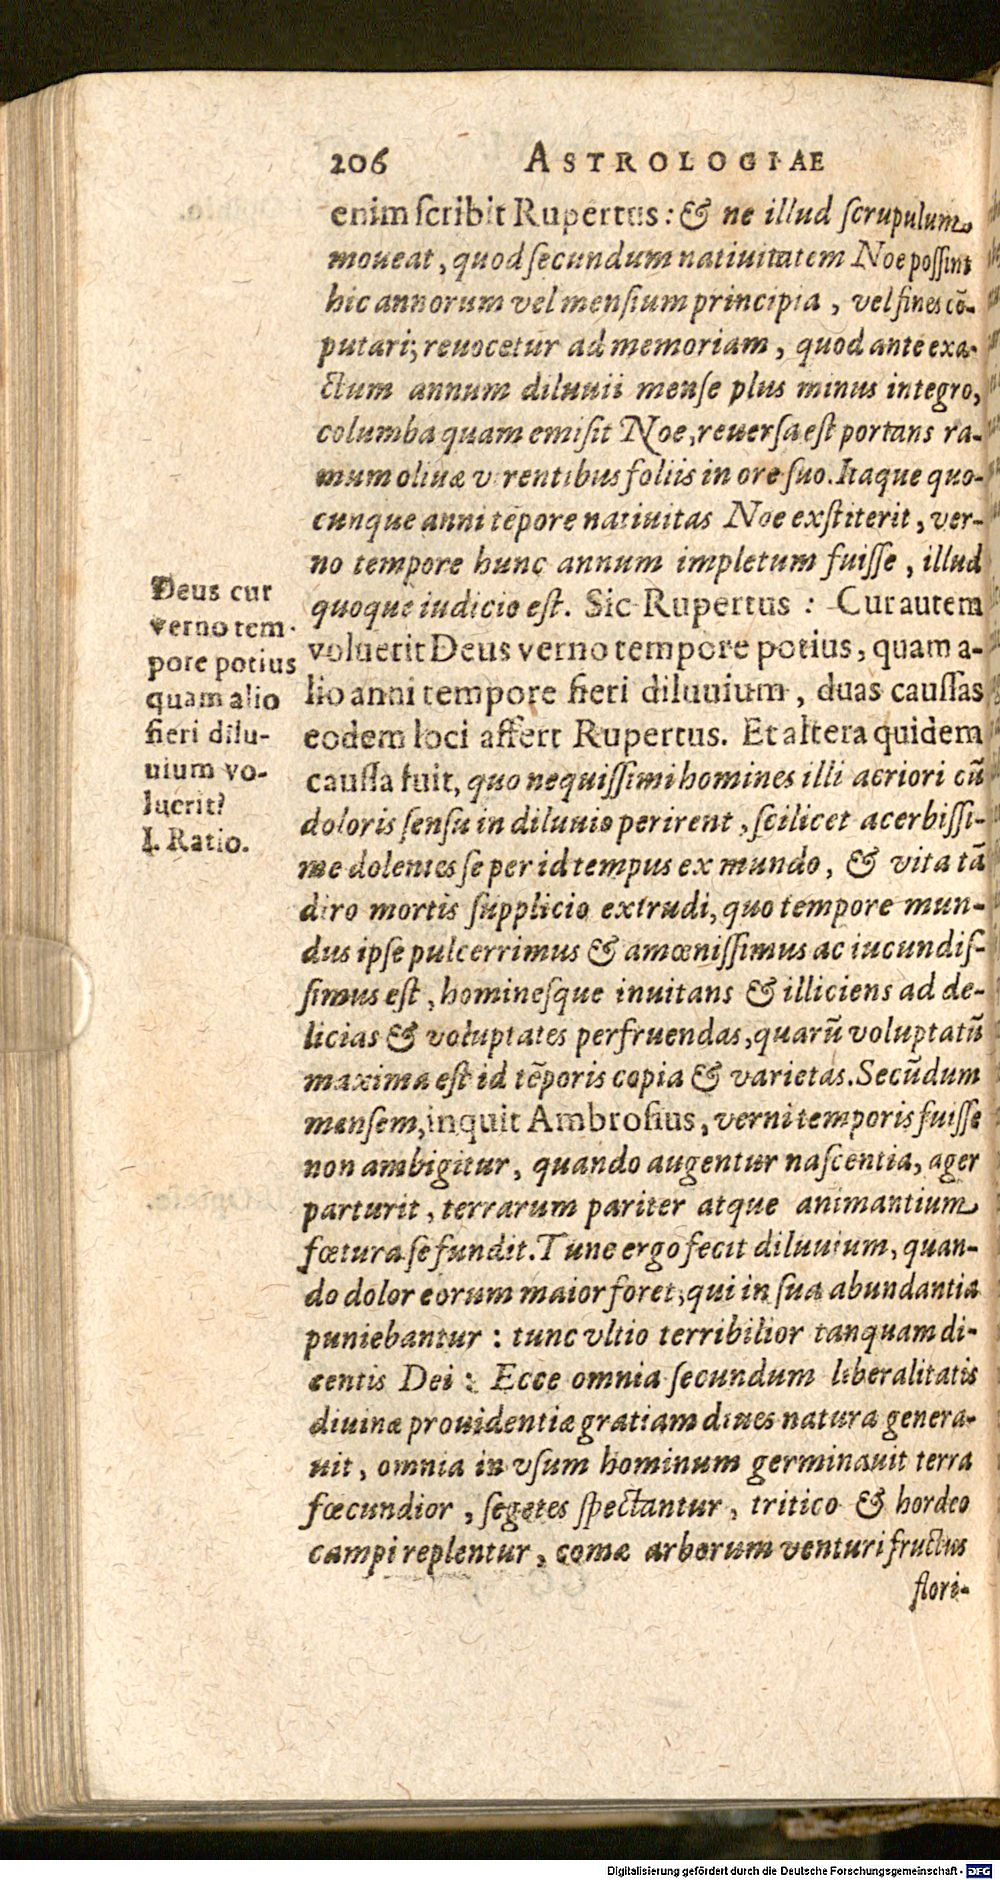 206 ASTROLOGIAE
enim ſcribit Rupertus: & ne illud ſcrupulum
moueat, quod ſecundum natiuitatem Noe poſſint
hic annorum vel menſium principia, vel fines cō-
putari; reuocetur ad memoriam, quod ante exa-
ctum annum diluuii menſe plus minus integro,
columba quam emiſit Noe, reuerſa eſt portans ra-
mum oliuæ virentibus foliis in ore ſuo. Itaque quo-
cunque anni tēpore natiuitas Noe exſtiterit, ver-
no tempore hunc annum impletum fuiſſe, illud
quoque iudicio eſt. Sic Rupertus: Cur autem
voluerit Deus verno tempore potius, quam a-
lio anni tempore fieri diluuium, duas cauſſas
eodem loci affert Rupertus. Et altera quidem
cauſſa fuit, quo nequiſſimi homines illi acriori cū
doloris ſenſu in diluuio perirent, ſcilicet acerbiſſi-
me dolentes ſe per id tempus ex mundo, & vita tā
diro mortis ſupplicio extrudi, quo tempore mun-
dus ipſe pulcerrimus & amœniſſimus ac iucundiſ-
ſimus eſt, hominesque inuitans & illiciens ad de-
licias & voluptates perfruendas, quarū voluptatū
maxima eſt id tēporis copia & varietas. Secūdum
menſem, inquit Ambroſius, verni temporis fuiſſe
non ambigitur, quando augentur naſcentia, ager
parturit, terrarum pariter atque animantium
fœtura ſe fundit. Tunc ergo fecit diluuium, quan-
do dolor eorum maior foret, qui in ſua abundantia
puniebantur: tunc vltio terribilior tanquam di-
centis Dei: Ecce omnia ſecundum liberalitatis
diuinæ prouidentiæ gratiam diues natura genera-
uit, omnia in vſum hominum germinauit terra
fœcundior, ſegetes ſpectantur, tritico & hordeo
campi replentur, comæ arborum venturi fructus
flori-
Deus cur
verno tem-
pore potius
quam alio
fieri dilu-
uium vo-
luerit?
I. Ratio.
Digitalisierung gefördert durch die Deutsche Forschungsgemeinschaft - DFG